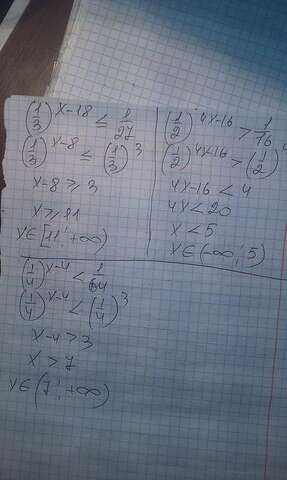 (1/3)^x-18 ≤ 1/27
(1/3)^x-8 ≤ (1/3)^3
x-8 ≥ 3
x ≥ 11
x∈[11; +∞)
(1/2)^4x-16 > 1/16
(1/2)^4x-16 > (1/2)^4
4x-16 < 4
4x < 20
x < 5
x∈(-∞; 5)
(1/4)^x-4 < 1/64
(1/4)^x-4 < (1/4)^3
x-4 > 3
x > 7
x∈(7; +∞)